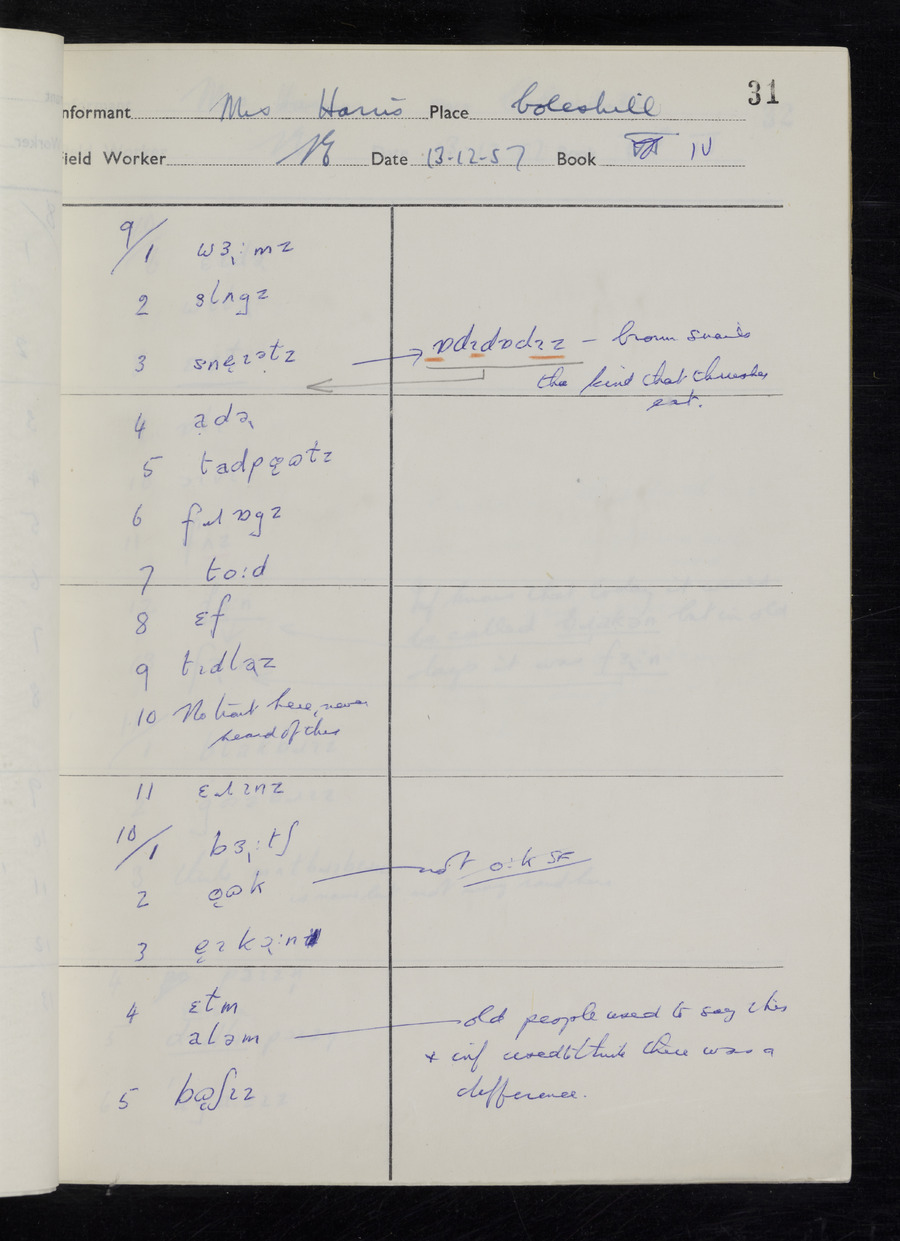 31
nformant Mrs Harris Place Coleshill
ield Worker Date 13-12-57 Book IV
9/1 wɜ˞:mz
2 slʌgz
3 snęɪəłz → ɒdɪdɒdɪz – brown snails
the kind that thrushes
eat.
4 adə˞
5 tadpǫʊłz
6 fɹɒgz
7 to:d
8 ɛf
9 tɪdləz
10 No trout here, never
heard of this
11 ɛɹɪnz
10/1 bɜ˞:tʃ
2 ǫʊk not o:k SF
3 ęɪkə:n
4 ɛłm
aləm old people used to say this
+ inf used to think there was a
difference.
5 bʊʃɪz